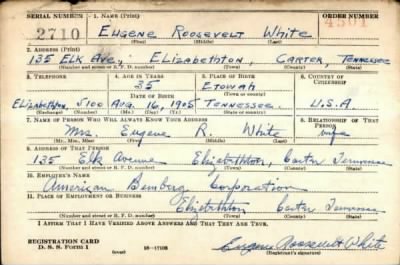 SERIAL NUMBER 1. NAME (Print) ORDER NUMBER
2710 EUGENE ROOSEVELT WHITE 4301
(First) (Middle) (Last)
2. ADDRESS (Print)
135 ELK AVE, ELIZABETHTON, CARTER, TENNESSEE
(Number and street or R. F. D. number) (Town) (County) (State)
3. TELEPHONE 4. AGE IN YEARS 5. PLACE OF BIRTH 6. COUNTRY OF CITIZENSHIP
35 ETOWAH
DATE OF BIRTH (Town or county)
ELIZABETHTON, 5100 AUG. 16, 1905 TENNESSEE. U.S.A
(Exchange) (Number) (Mo.) (Day) (Yr.) (State or country)
7. NAME OF PERSON WHO WILL ALWAYS KNOW YOUR ADDRESS 8. RELATIONSHIP OF THAT PERSON
Mrs. Eugene R. White wife
(Mr., Mrs., Miss) (First) (Middle) (Last)
9. ADDRESS OF THAT PERSON
135 Elk Avenue Elizabethton, Carter Tennessee
(Number and street or R. F. D. number) (Town) (County) (State)
10. EMPLOYER'S NAME
American Bemberg Corporation
11. PLACE OF EMPLOYMENT OR BUSINESS
Elizabethton Carter Tennessee
(Number and street or R. F. D. number) (Town) (County) (State)
I AFFIRM THAT I HAVE VERIFIED ABOVE ANSWERS AND THAT THEY ARE TRUE.
REGISTRATION CARD
D. S. S. Form 1 (over) 16—17105 Eugene Roosevelt White
(Registrant's signature)